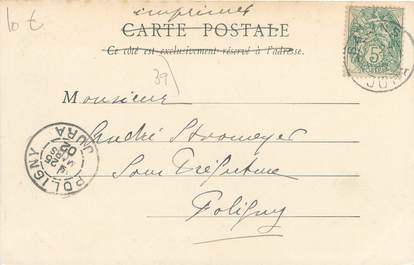 10 €
imprimés
CARTE POSTALE
Ce côté est exclusivement réservé à l'adresse.
39
Monsieur
André Stromeyer
Sous Préfecture
Poligny
POLIGNY
JURA
5c